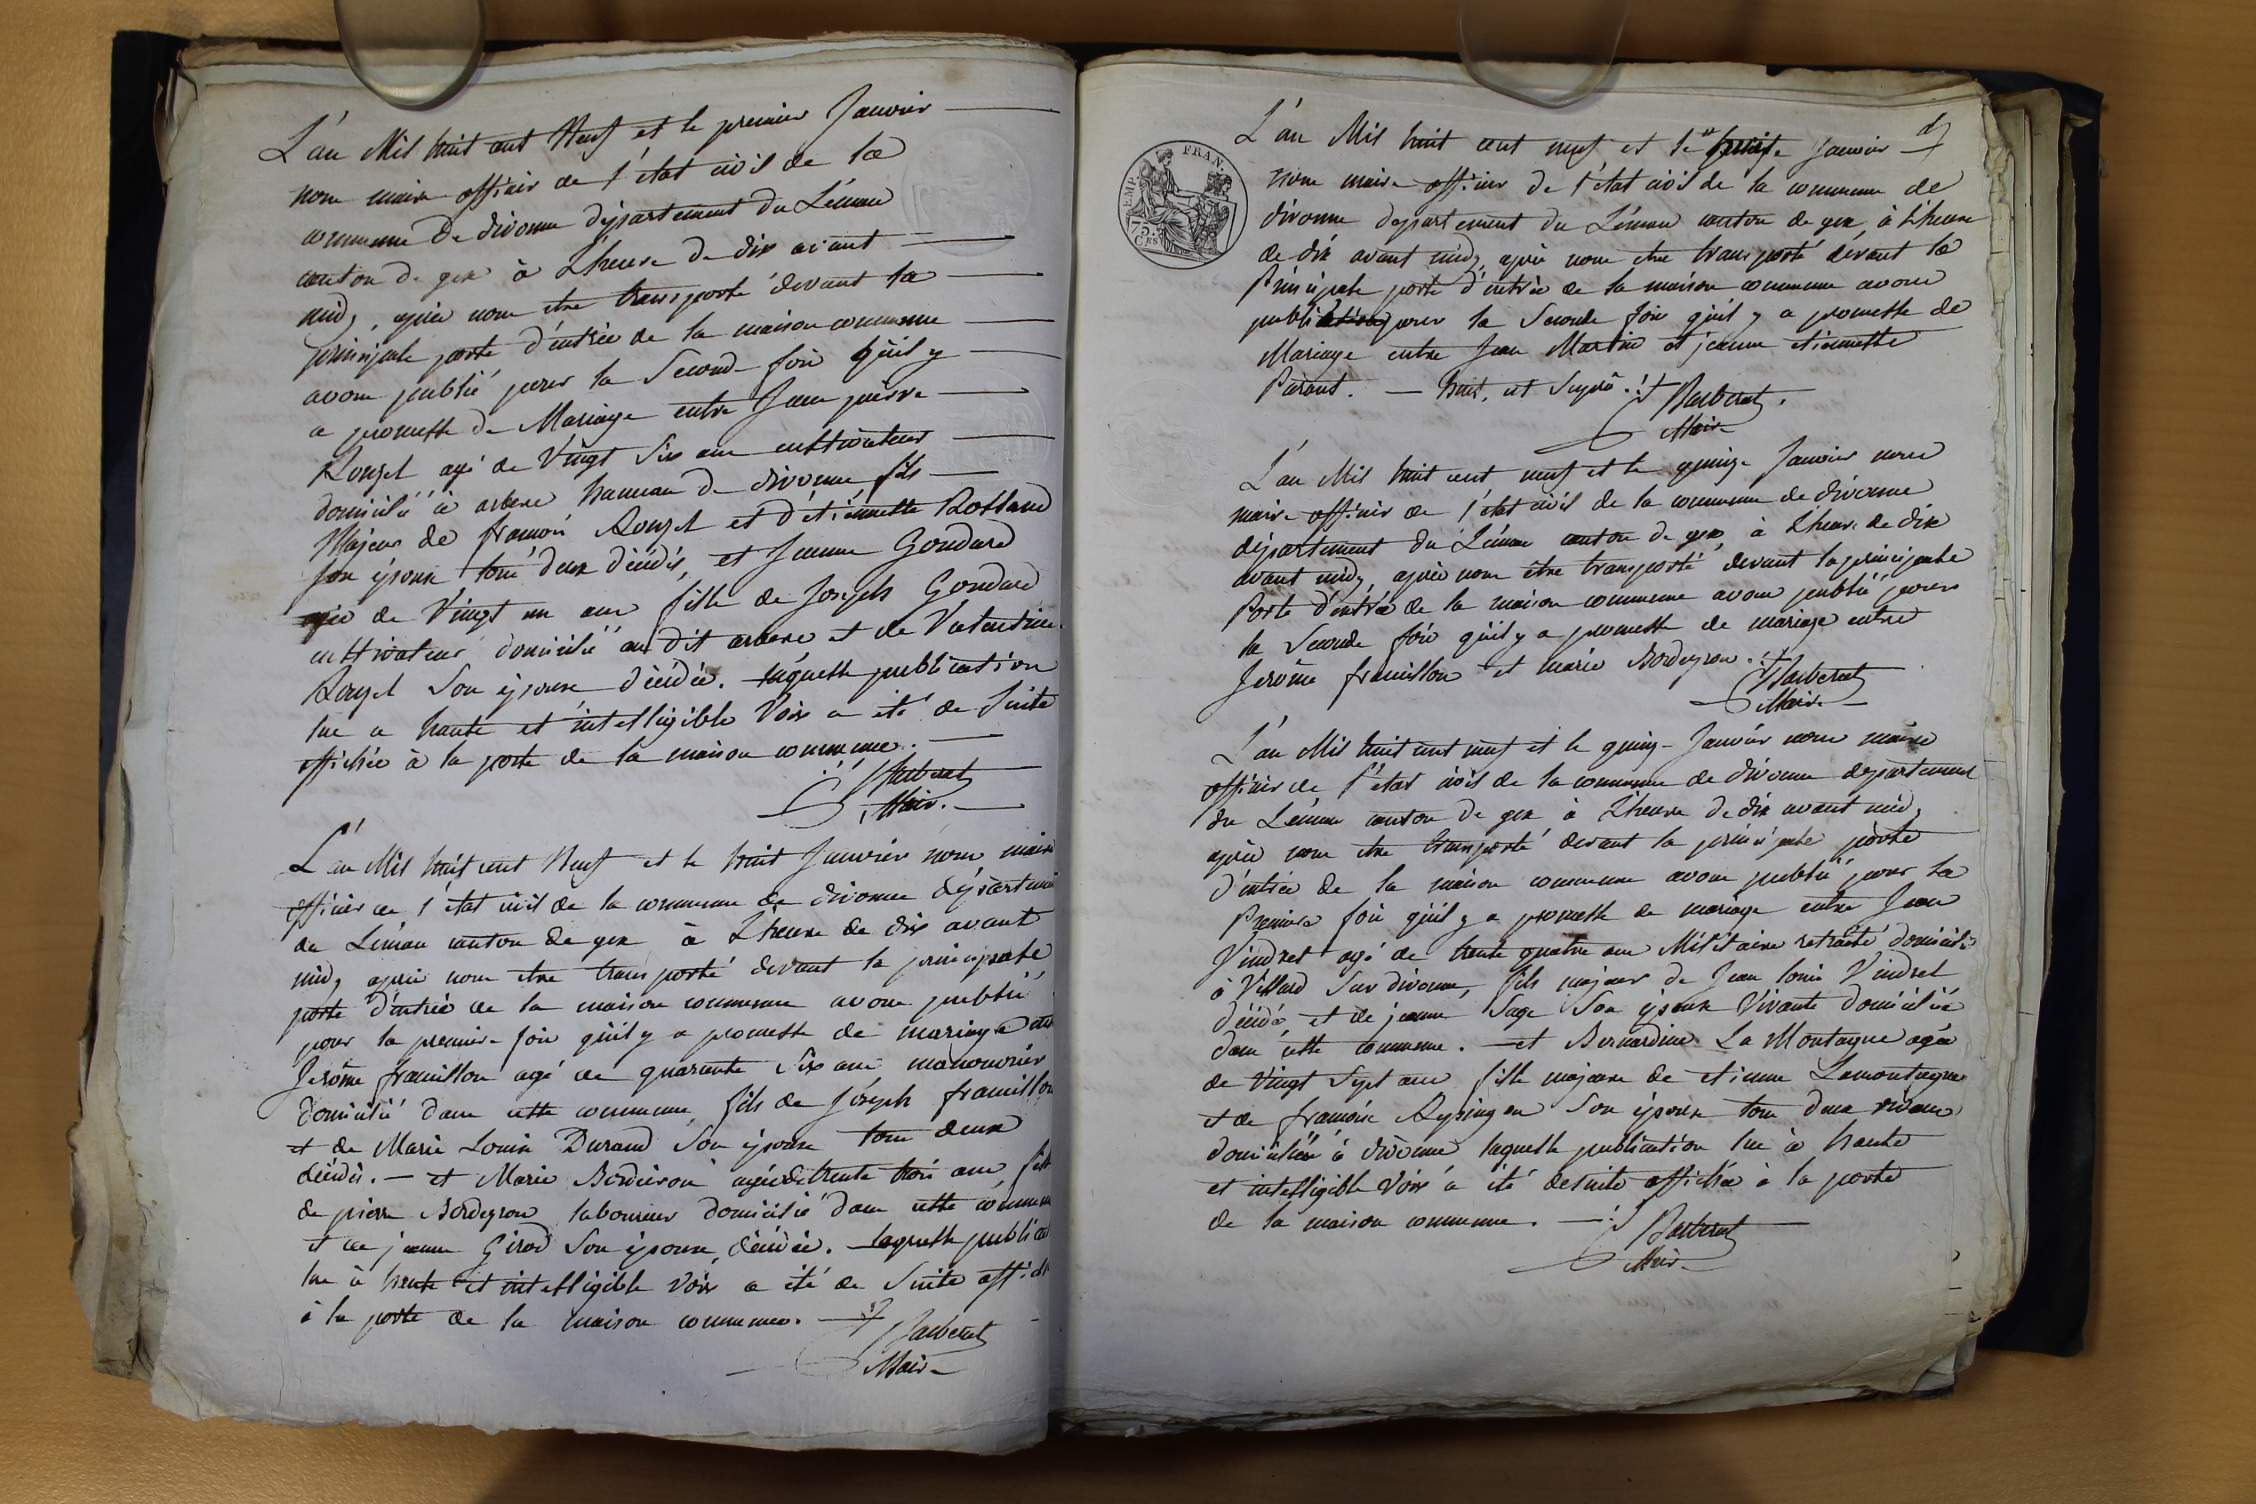 L'an Mil huit cent Neuf et le premier Janvier
nous maire officier de l'état civil de la
commune De divonne département du Léman
canton de gex à L'heure de dix avant
midy, après nous etre transporté devant la
principale porte d'entrée de la maison commune
avons publié pour la Seconde fois qu'il y
a promesse de Mariage entre Jean pierre
Rouzet agé de Vingt Six ans cultivateur
domicilié à arbere hameau de divonne fils
Majeur de francois Rouzet et d'étiennette Rolland
son épouse tous deux décédés, et Jeanne Goudard
agée de Vingt un ans fille de Joseph Goudard
cultivateur domicilié au dit arbere et de Valentine
Rouzet Son épouse décédée. laquelle publication
lue a haute et intelligible Voix a été de Suite
affichée à la porte de la maison commune.
Barberat
Maire.
L'an Mil huit cent Neuf et le huit Janvier nous maire
officier de l'état civil de la commune de divonne département
du Léman canton de gex à L'heure de dix avant
midy après nous etre transporté devant la principale
porte d'entrée de la maison commune avons publié
pour la premiere fois qu'il y a promesse de mariage
Jerôme franillon agé de quarante Six ans manouvrier
domicilié dans cette commune, fils de Joseph franillon
et de Marie Louise Durand Son épouse tous deux
décédés. — et Marie agée de trente trois ans fille
de pierre Bordeyron laboureur domicilié dans cette commune
et de jeanne Girod Son épouse, décédée. laquelle
lue à haute et intelligible Voix a été de Suite
à la porte de la maison commune.
Barberat
Maire
L'an Mil huit cent neuf et le Janvier
nous maire officier de l'état civil de la commune de
divonne departement du Léman canton de gex, à L'heure
de dix avant midy, après nous etre transporté dévant la
Principale porte d'entrée de la maison commune avons
publié pour la Seconde fois qu'il y a promesse de
Mariage entre Jean Martin et jeanne etiennette
Parent. —
Barberat.
Maire
L'an Mil huit cent neuf et le quinze Janvier nous
maire officier de l'état civil de la commune de divonne
département du Léman canton de gex, à L'heure de dix
avant midy, après nous être transporté devant la principale
Porte d'entrée de la maison commune avons publié pour
la Seconde fois qu'il y a promesse de mariage entre
Jerôme franillon et marie Bordeyron.
Barberat
Maire
L'an Mil huit cent neuf et le quinze Janvier nous maire
officier de l'état civil de la commune de divonne departement
du Léman canton De gex à L'heure De dix avant midy
après nous etre transporté devant la principale porte
d'entrée de la maison commune avons publié pour la
Premiere fois qu'il y a promesse de mariage entre Jean
Vindret agé de trente quatre ans Militaire retraité domicilié
à Villard Sur divonne, fils majeur de Jean louis Vindret
décédé, et de jeanne Sage Son épouse Vivante domiciliée
dans cette commune. — et Bernardine La Montagne agée
de Vingt Sept ans fille majeure de etienne Lamontagne
et de francoise Son épouse tous deux vivans
domiciliés à divonne laquelle publication lue à haute
et intelligible Voix a été desuite affichée à la porte
de la maison commune. —
Barberat
Maire
EMP. FRAN.
75.
CES